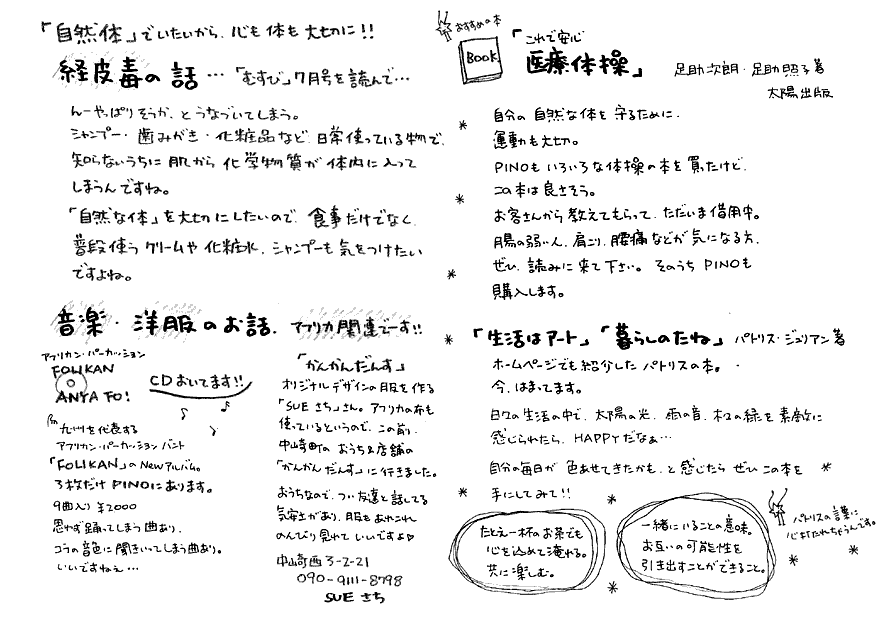 「自然体」でいたいから、心も体も大切に!!
経皮毒の話…「むすび」7月号を読んで…
んーやっぱりそうか、とうなづいてしまう。
シャンプー・歯みがき・化粧品など、日常使っている物で、
知らないうちに肌から化学物質が体内に入って
しまうんですね。
「自然な体」を大切にしたいので、食事だけでなく、
普段使うクリームや化粧水、シャンプーも気をつけたい
ですよね。
音楽・洋服のお話、アフリカ関連でーす!!
アフリカン・パーカッション
FOLIKAN
ANYA TO!
CDおいてます!!
九州を代表する
アフリカン・パーカッションバンド
「FOLIKAN」のNewアルバム。
3枚だけPINOにあります。
9曲入り ¥2000
思わず踊ってしまう曲あり、
コラの音色に聞きいってしまう曲あり。
いいですねぇ…
「かんかんだんす」
オリジナルデザインの服を作る
「SUEさち」さん。アフリカの布も
使っているというので、この前、
中山寺町のおうち&店舗の
「かんかんだんす」に行きました。
おうちなので、つい友達と話してる
気安さがあり、服をあれこれ
のんびり見れていいですよ♡
中山寺西3-2-21
090-9111-8798
SUEさち
おすすめの本
Book
「これで安心
医療体操」
足助次朗・足助照子著
太陽出版
自分の自然な体を守るために、
運動も大切。
PINOもいろいろな体操の本を買ったけど、
この本は良さそう。
お客さんから教えてもらって、ただいま借用中。
腸の弱い人、肩こり、腰痛などが気になる方、
ぜひ、読みに来て下さい。そのうちPINOも
購入します。
「生活はアート」「暮らしのたね」パトリス・ジュリアン著
ホームページでも紹介したパトリスの本。
今、はまってます。
日々の生活の中で、太陽の光、雨の音、木々の緑を素敵に
感じられたら、HAPPYだなぁ…
自分の毎日が色あせてきたかも、と感じたらぜひこの本を
手にしてみて!!
たとえ一杯のお茶でも
心を込めて淹れる。
共に楽しむ。
一緒にいることの意味。
お互いの可能性を
引き出すことができること。
パトリスの言葉に
心打たれちゃうんです。